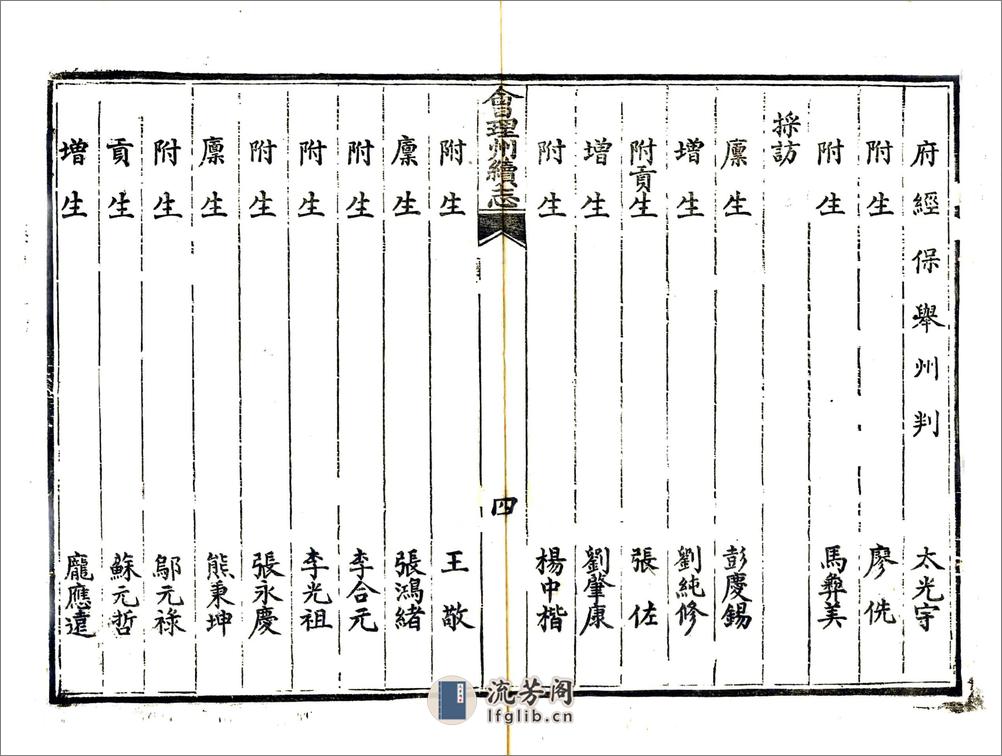 府經保舉州判 太光宇
附生 廖侁
附生 馬彝美
採訪
廪生 彭慶錫
增生 劉純修
附貢生 張佐
增生 劉肇康
附生 楊中楷
會理州續志
四
附生 王敬
廪生 張鴻緒
附生 李合元
附生 李光祖
附生 張永慶
廪生 熊秉坤
附生 鄔元祿
貢生 蘇元哲
增生 龐應遠
流芳阁
lfglib.cn